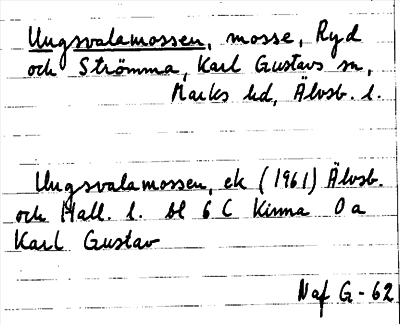 Ungsvalamossen, mosse, Ryd
och Strömma, Karl Gustavs sn,
Marks hd, Älvsb. l.
Ungsvalamossen, ek (1961) Älvsb.
och Hall. l. bl 6 C Kinna 0 a
Karl Gustav
Naf G-62